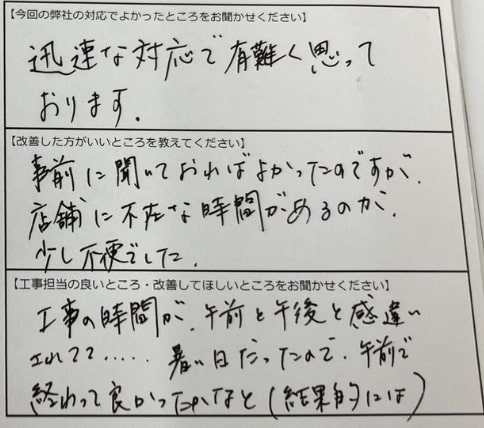 【今回の弊社の対応でよかったところをお聞かせください】
迅速な対応で有難く思って
おります.
【改善した方がいいところを教えてください】
事前に聞いておればよかったのですが.
店舗に不在な時間があるのが.
少し不便でした.
【工事担当の良いところ・改善してほしいところをお聞かせください】
工事の時間が、午前と午後と感違い
されてて..... 暑い日だったので、午前で
終わって良かったかなと(結果的には)